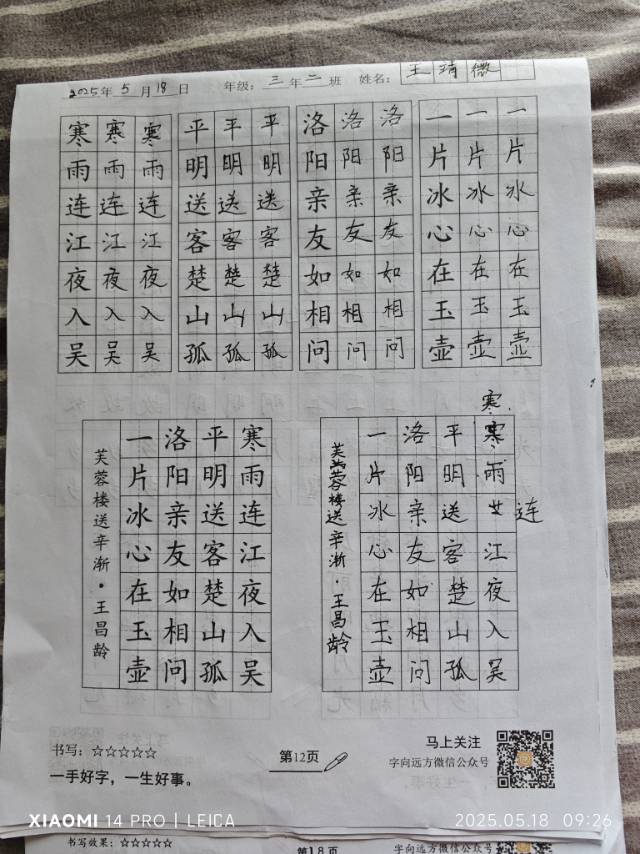 2025年5月18日 年级:三年二班 姓名:王靖微
寒雨连江夜入吴
寒雨连江夜入吴
寒雨连江夜入吴
平明送客楚山孤
平明送客楚山孤
平明送客楚山孤
洛阳亲友如相问
洛阳亲友如相问
洛阳亲友如相问
一片冰心在玉壶
一片冰心在玉壶
一片冰心在玉壶
芙蓉楼送辛渐·王昌龄
寒雨连江夜入吴
平明送客楚山孤
洛阳亲友如相问
一片冰心在玉壶
芙蓉楼送辛渐·王昌龄
寒
寒雨连江夜入吴
平明送客楚山孤
洛阳亲友如相问
一片冰心在玉壶
书写:☆☆☆☆☆
一手好字,一生好事。
第12页
马上关注
字向远方微信公众号
XIAOMI 14 PRO | LEICA
2025.05.18 09:26
书写效果:☆☆☆☆☆
第18页
字向远方微信公众号